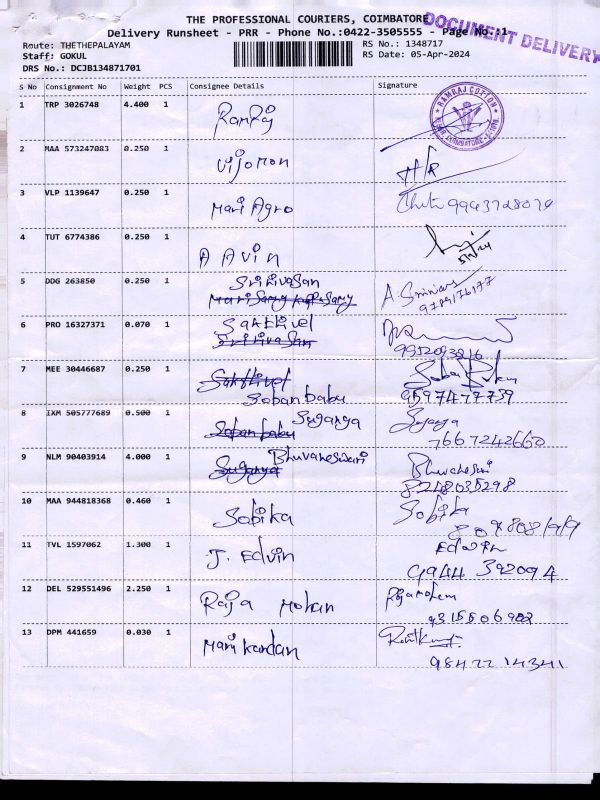 THE PROFESSIONAL COURIERS, COIMBATORE
DOCUMENT DELIVERY
Delivery Runsheet - PRR - Phone No.:0422-3505555 - Page No.:1
Route: THETHEPALAYAM RS No.: 1348717
Staff: GOKUL RS Date: 05-Apr-2024
DRS No.: DCJB134871701
S No Consignment No Weight PCS Consignee Details Signature
1 TRP 3026748 4.400 1 Ramraj RAMRAJ COTTON
2 MAA 573247083 0.250 1 Vijomon
3 VLP 1139647 0.250 1 Mari Agro
4 TUT 6774386 0.250 1 A Avin
5 DDG 263850 0.250 1 Srinivasan A. Srinivas
9789176177
6 PRO 16327371 0.070 1 Sakthivel
Srinivasan
7 MEE 30446687 0.250 1 Sakthivel
Soban babu 9597477739
8 IXM 505777689 0.500 1 Suganya Suganya
Soban babu 7667242660
9 NLM 90403914 4.000 1 Bhuvaneswari
Suganya 8248035298
10 MAA 944818368 0.460 1 Sobika Sobika
11 TVL 1597062 1.300 1 J. Edvin Edwin
9944 392094
12 DEL 529551496 2.250 1 Raja Mohan Rajamohan
13 DPM 441659 0.030 1 Mari kandan
9842214341